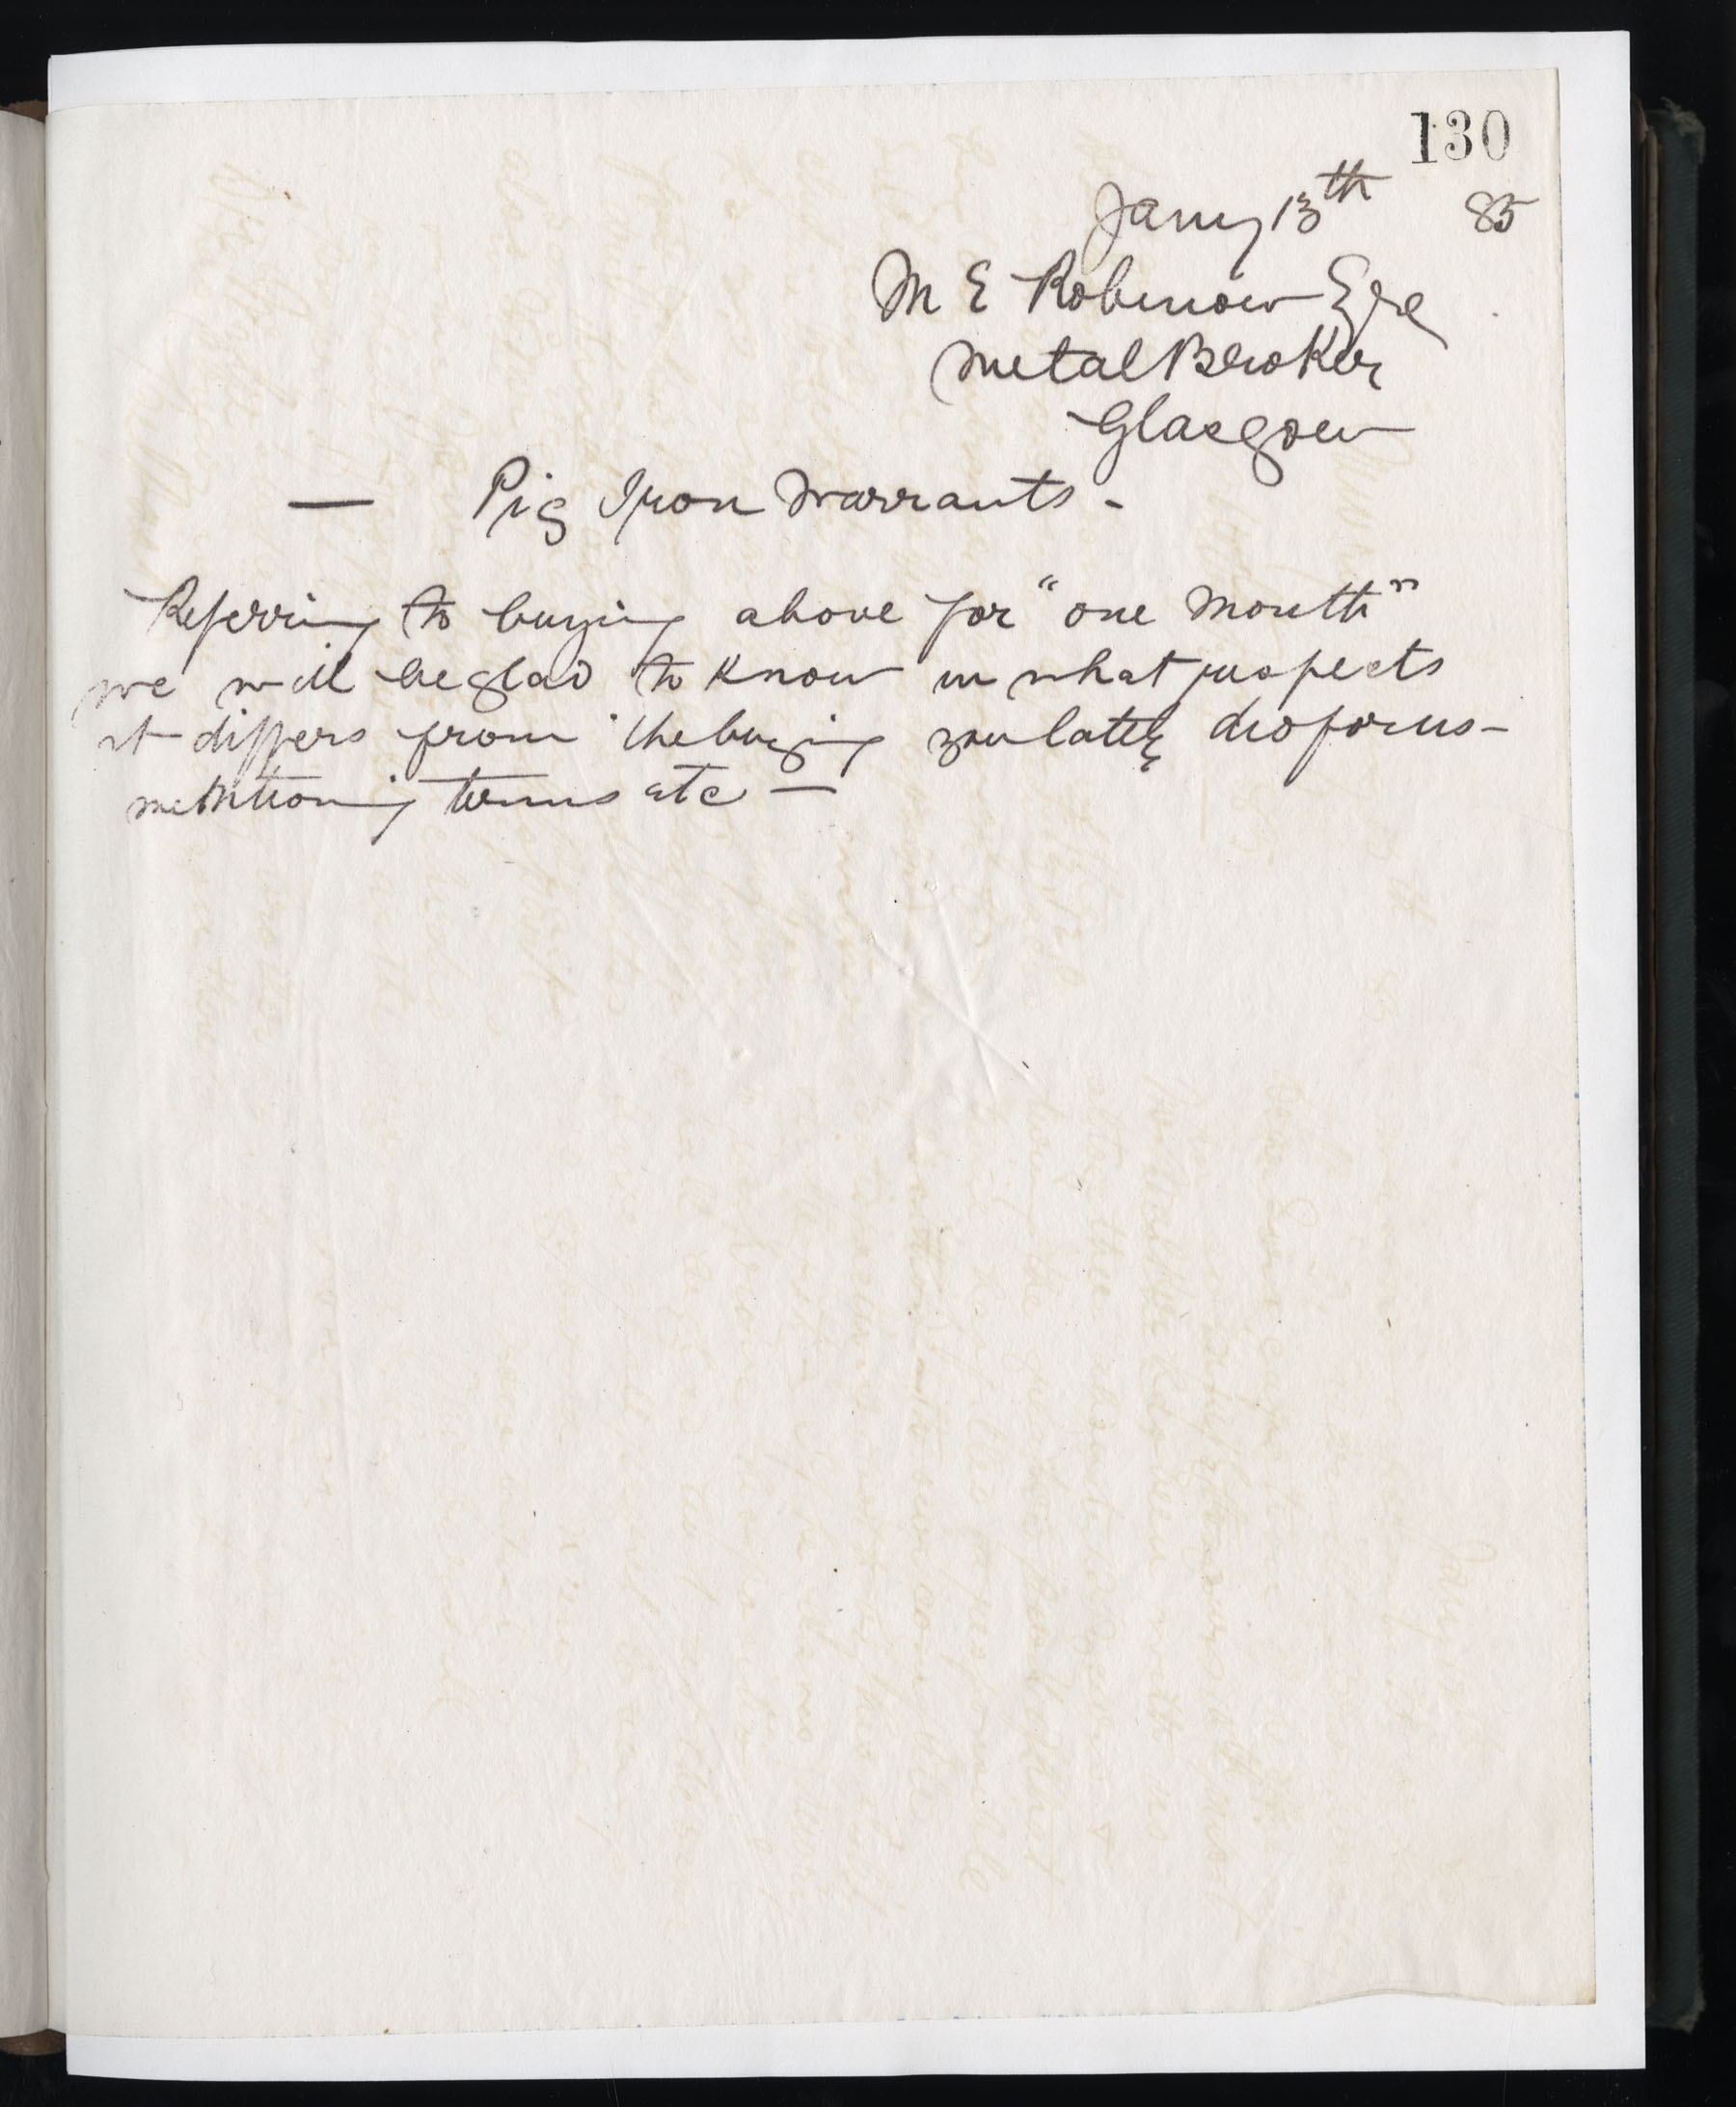 130
Jany 13th 85
M E Robinow Esqe
Metal Broker
Glasgow
— Pig Iron Warrants -
Referring to buying above for "one month"
we will be glad to know in what respects
it differs from the buying you lately did for us -
mentioning terms etc —